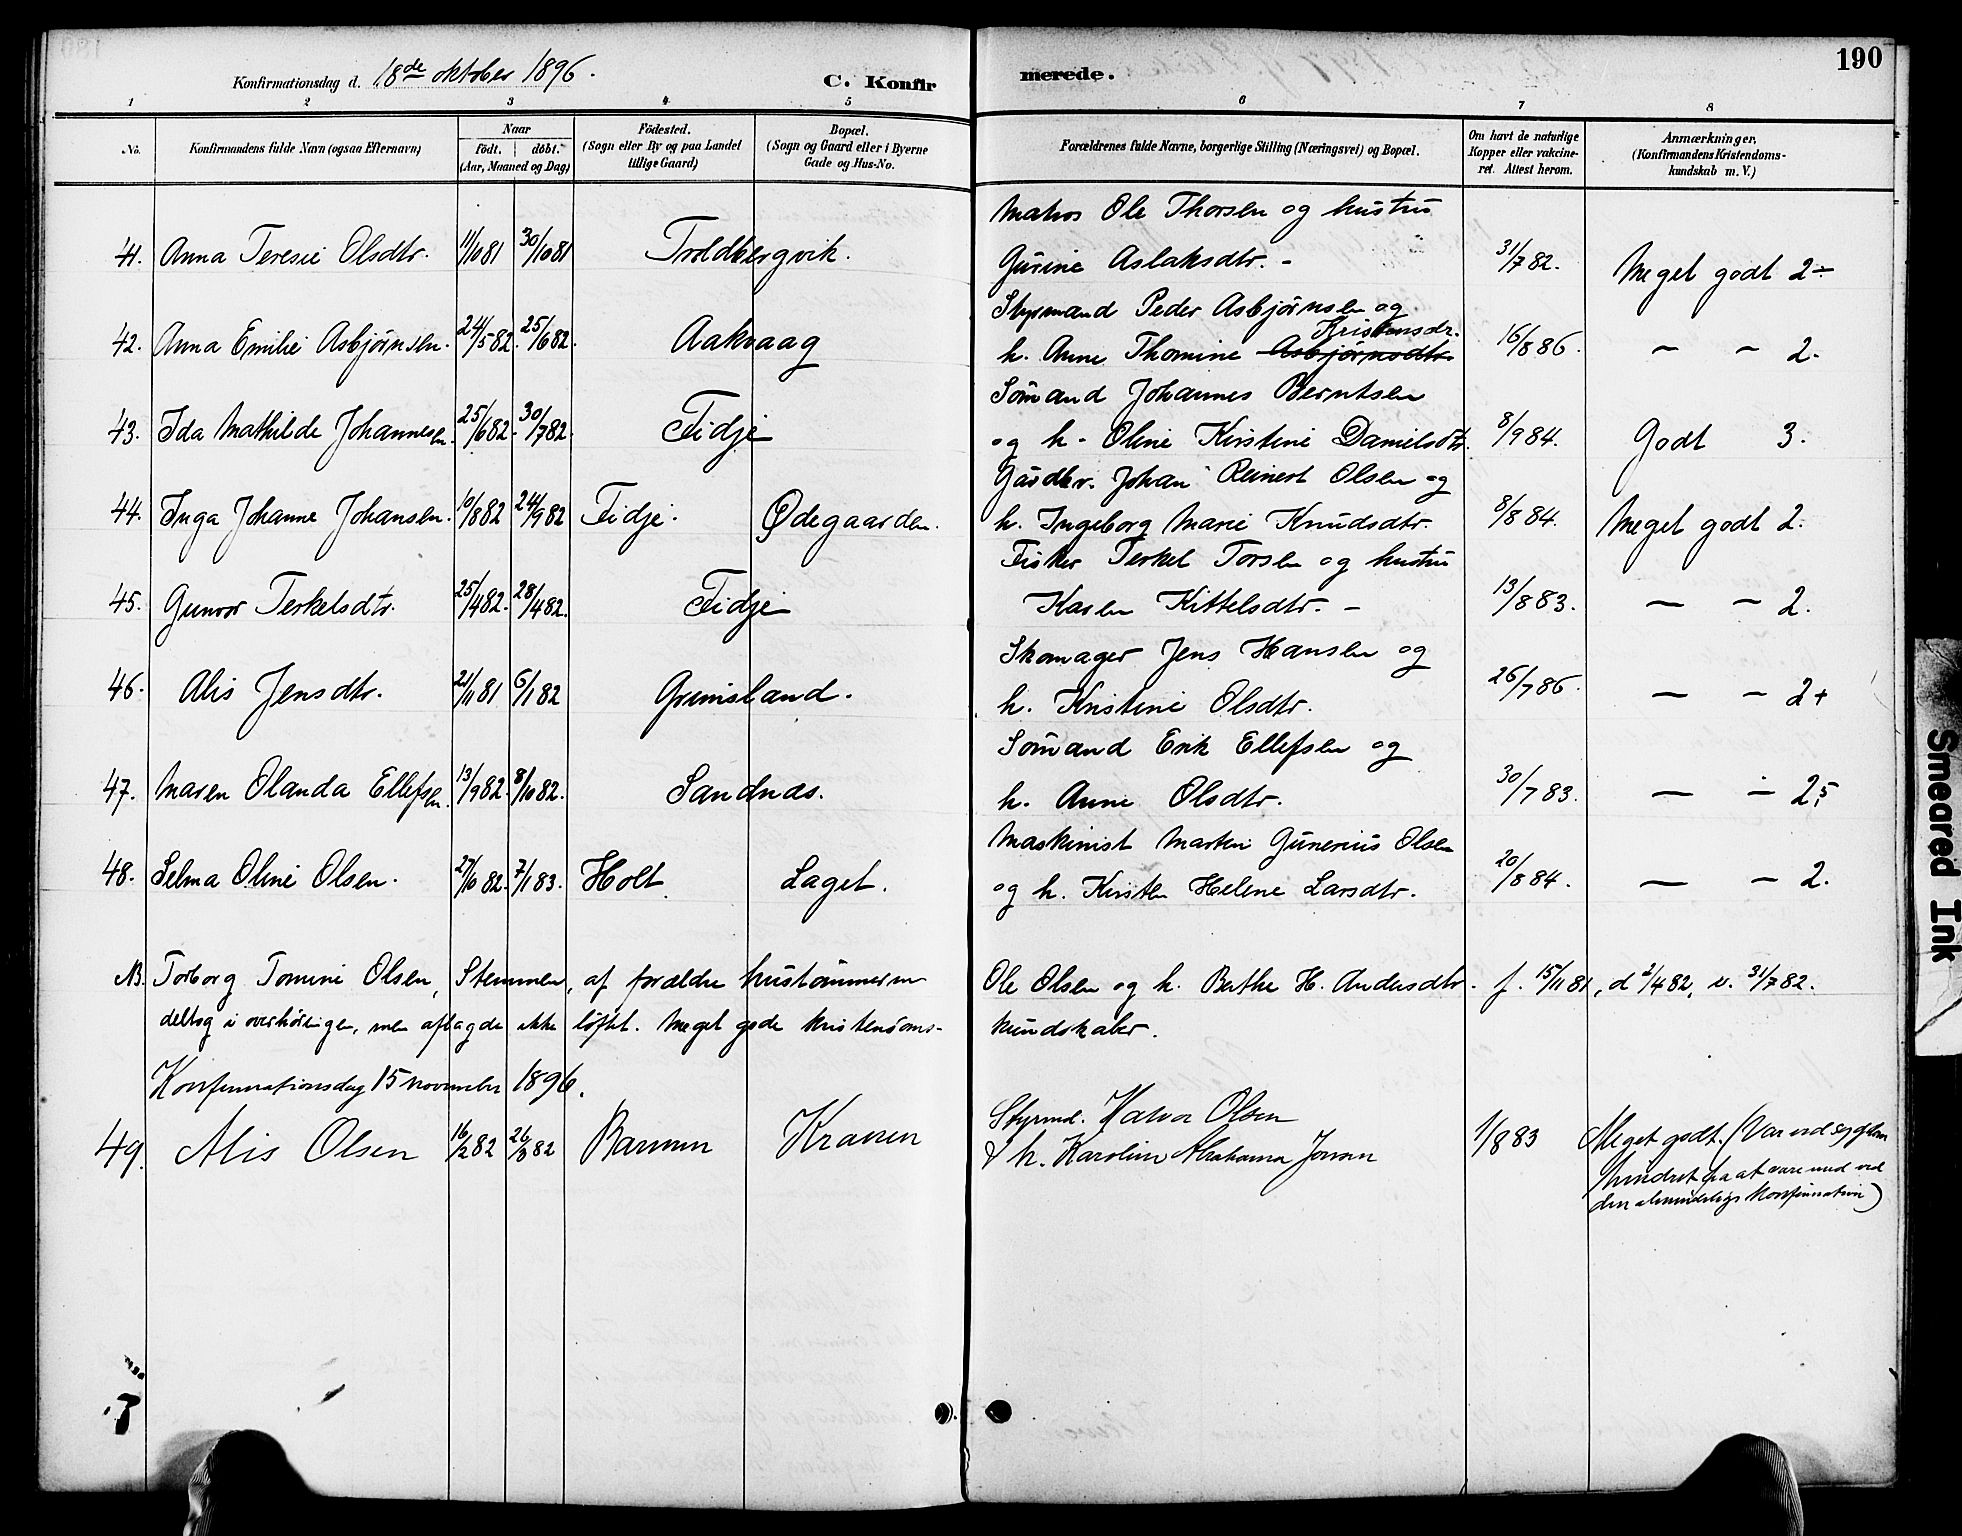 190
Konfirmationsdag d. 18de oktober 1896.
C. Konfir merede.
1 2 3 4 5 6 7 8
No.
Konfirmandens fulde Navn (ogsaa Efternavn)
Naar
födt. döbt.
(Aar, Maaned og Dag)
Födested.
(Sogn eller By og paa Landet
tillige Gaard)
Bopæl.
(Sogn og Gaard eller i Byerne
Gade og Hus-No.
Forældrenes fulde Navne, borgerlige Stilling (Næringsvei) og Bopæl.
Om havt de naturlige
Kopper eller vakcine-
ret. Attest herom.
Anmærkninger,
(Konfirmandens Kristendoms-
kundskab m. V.)
Matros Ole Thorsen og hustru
41. Anna Teresie Olsdtr. 11/10 81 30/10 81 Troldbergvik. Gurine Aslaksdtr. - 31/7 82. Meget godt 2÷
Styrmand Peder Asbjørnsen og
Kristensdr.
42. Anna Emilie Asbjørnsen. 24/5 82. 25/6 82. Aakvaag h. Anne Thomine Asbjørnsdtr. 16/8 86. — - 2.
Sømand Johannes Berntsen
43. Ida Mathilde Johannesen. 25/6 82. 30/7 82. Fidje og h. Oline Kirstine Danielsdtr. 8/9 84. Godt 3.
Gårdbr. Johan Reinert Olsen og
44. Inga Johanne Johansen. 10/8 82 24/9 82 Fidje. Ødegaarden. h. Ingeborg Marie Knudsdtr. 8/8 84. Meget godt 2.
Fisker Terkel Torsen og hustru
45. Gunvor Terkelsdtr. 25/4 82. 28/4 82. Fidje Karen Kittelsdtr. - 13/8 83. — - 2.
Skomager Jens Hansen og
46. Alis Jensdtr. 21/11 81 6/1 82 Grimsland. h. Kristine Olsdtr. 26/7 86. — - 2+
Sømand Erik Ellefsen og
47. Maren Olanda Ellefsen. 13/9 82. 8/10 82. Sandnes. h. Anne Olsdtr. 30/7 83. — - 2,5
Maskinist Martin Gunerius Olsen
48. Selma Oline Olsen. 27/10 82. 7/1 83. Holt. Laget. og h. Kirsten Helene Larsdtr. 20/8 84. — - 2.
NB. Torborg Tomine Olsen, Stemmen, af forældre hustømmerm Ole Olsen og h. Berthe H. Andersdtr. f. 15/11 81, d 2/4 82, v. 31/7 82.
deltog i overhøringen, men aflagde ikke løftet. Meget gode kristendoms- kundskaber.
Konfirmationsdag 15 november 1896.
Styrmd. Halvor Olsen
49. Alis Olsen 16/2 82 26/3 82 Barmen Kranen & h. Karoline Abrahama Jonsen 1/8 83 Meget godt. (Var ved sygdom
hindret fra at være med ved
den almindelige Konfirmation)
Smeared Ink